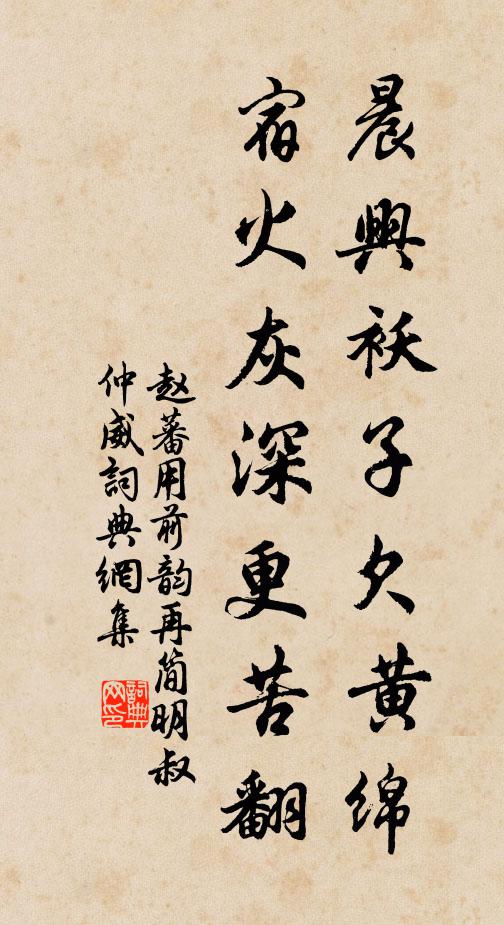 晨興袄子欠黃綿
宿火灰深更苦翻
赵蕃用前韵再简明叔
仲威詞典網集
詞典网印